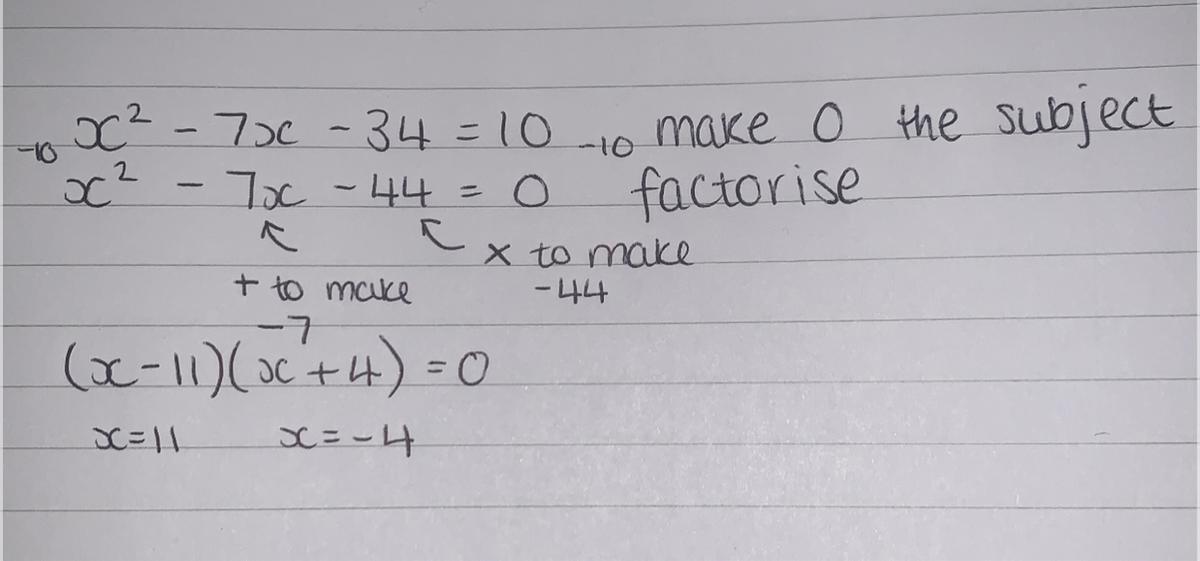 -10 x² - 7x - 34 = 10 -10 make 0 the subject
x² - 7x - 44 = 0 factorise
↖ ↖ x to make
+ to make -44
-7
(x-11)(x+4) = 0
x=11 x=-4